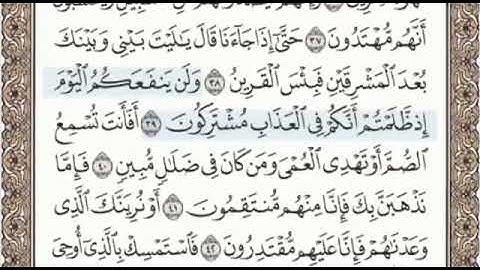 أَنَّهُم مُّهْتَدُونَ ٣٧ حَتَّىٰٓ إِذَا جَآءَنَا قَالَ يَٰلَيْتَ بَيْنِى وَبَيْنَكَ
بُعْدَ ٱلْمَشْرِقَيْنِ فَبِئْسَ ٱلْقَرِينُ ٣٨ وَلَن يَنفَعَكُمُ ٱلْيَوْمَ
إِذ ظَّلَمْتُمْ أَنَّكُمْ فِى ٱلْعَذَابِ مُشْتَرِكُونَ ٣٩ أَفَأَنتَ تُسْمِعُ
ٱلصُّمَّ أَوْ تَهْدِى ٱلْعُمْىَ وَمَن كَانَ فِى ضَلَٰلٍ مُّبِينٍ ٤٠ فَإِمَّا
نَذْهَبَنَّ بِكَ فَإِنَّا مِنْهُم مُّنتَقِمُونَ ٤١ أَوْ نُرِيَنَّكَ ٱلَّذِى
وَعَدْنَٰهُمْ فَإِنَّا عَلَيْهِم مُّقْتَدِرُونَ ٤٢ فَٱسْتَمْسِكْ بِٱلَّذِىٓ أُوحِىَ